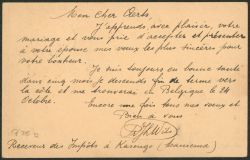 Mon Cher Aerts,
J'apprends avec plaisir, votre
mariage et vous prie d'accepter et présenter
à votre épouse mes vœux les plus sincères pour
votre bonheur.
Je suis toujours en bonne santé
dans cinq mois je descends fin de terme vers
la côte et me trouverai en Belgique le 24
Octobre.
Encore une fois tous mes vœux et
Bien à vous
Receveur des Impôts à Kasongo